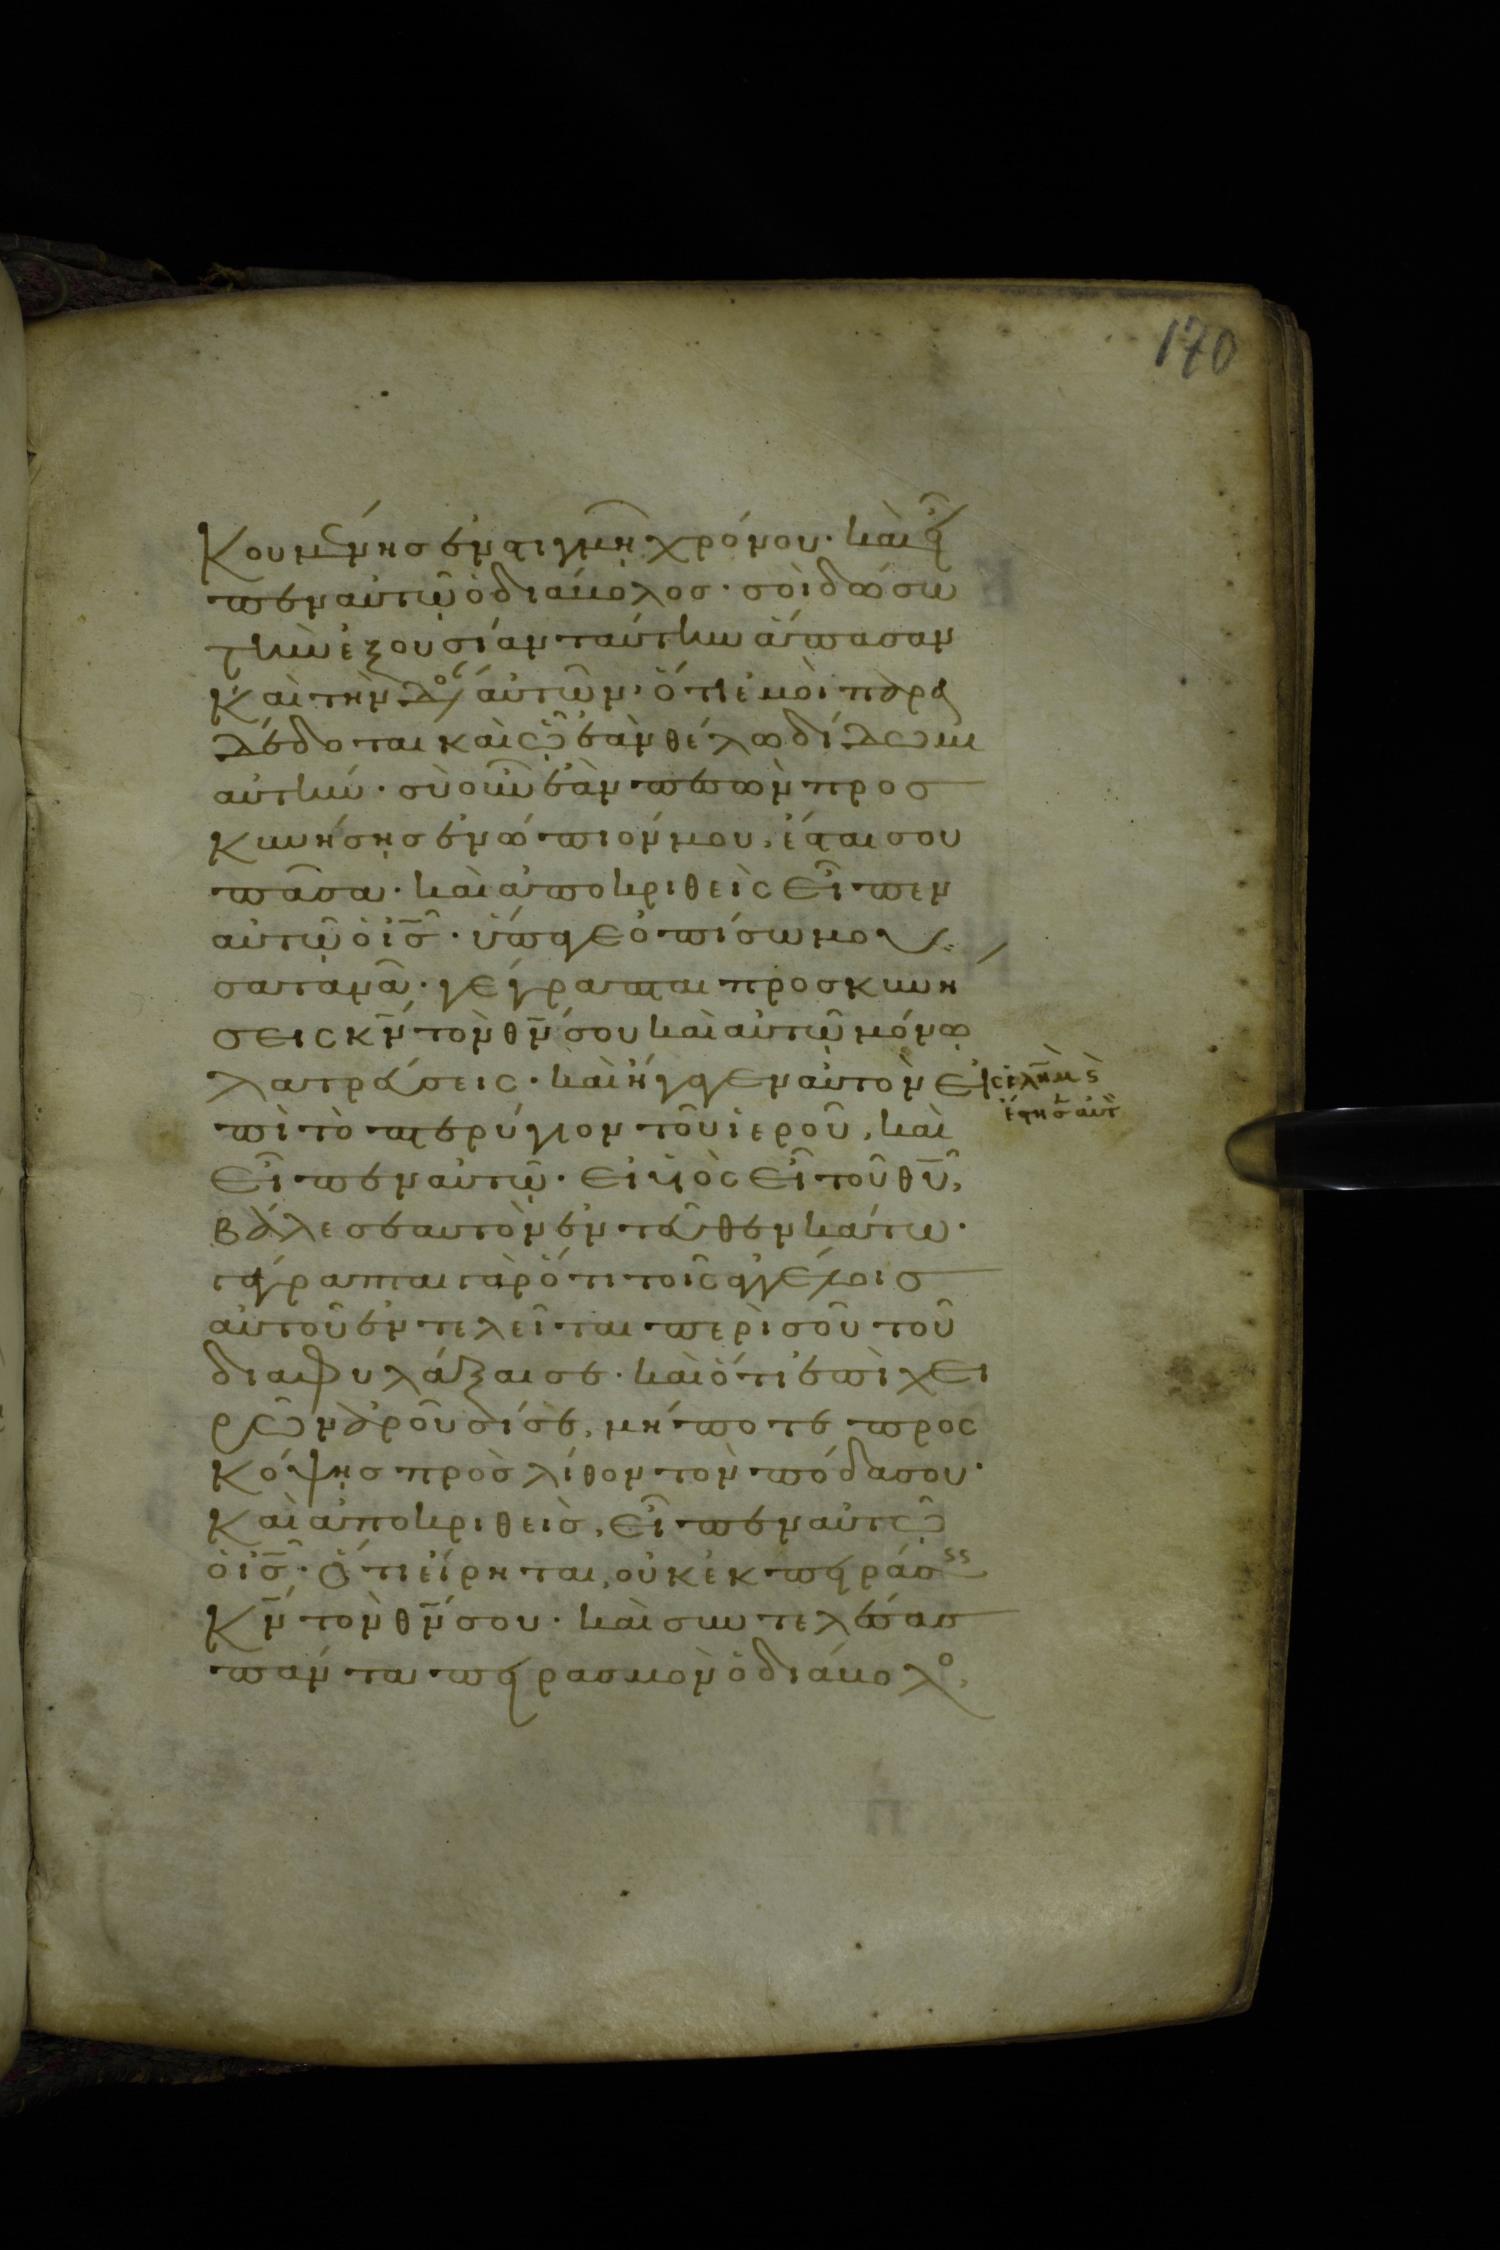 170
κουμένης ἐν στιγμῆ χρόνου· καὶ εἶ
πεν αὐτῶ ὁ διάβολος· σοὶ δώσω
τὴν ἐξουσίαν ταύτην ἅπασαν
καὶ τὴν δόξαν αὐτῶν· ὅτι ἐμοὶ παρα
δέδοται καὶ ὧ ἐὰν θέλω δίδωμι
αὐτήν· σὺ οὖν ἐὰν πεσὼν προσ
κυνήσης ἐνώπιόν μου, ἔσται σου
πᾶσα· καὶ ἀποκριθεὶς εἶπεν
αὐτῶ ὁ ις· ὕπαγε ὀπίσω μου
σατανᾶ· γέγραπται προσκυνή
σεις κν τὸν θν σου καὶ αὐτῶ μόνω
λατρεύσεις· καὶ ἤγαγεν αὐτὸν ε
ἔστησεν αὐτὸν
πὶ τὸ πτερύγιον τοῦ ἱεροῦ, καὶ
εἶπεν αὐτῶ· εἰ υἱὸς εἶ τοῦ θυ,
βάλε σεαυτὸν ἐντεῦθεν κάτω·
γέγραπται γὰρ ὅτι τοῖς ἀγγέλοις
αὐτοῦ ἐντελεῖται περὶ σοῦ τοῦ
διαφυλάξαι σε· καὶ ὅτι ἐπὶ χει
ρῶν ἀροῦσί σε, μήποτε προσ
κόψης πρὸς λίθον τὸν πόδα σου·
καὶ ἀποκριθεὶς, εἶπεν αὐτῶ
ὁ ις· ὅτι εἴρηται, οὐκ ἐκπειράσεις
κν τὸν θν σου· καὶ συντελέσας
πάντα πειρασμὸν ὁ διάβολος